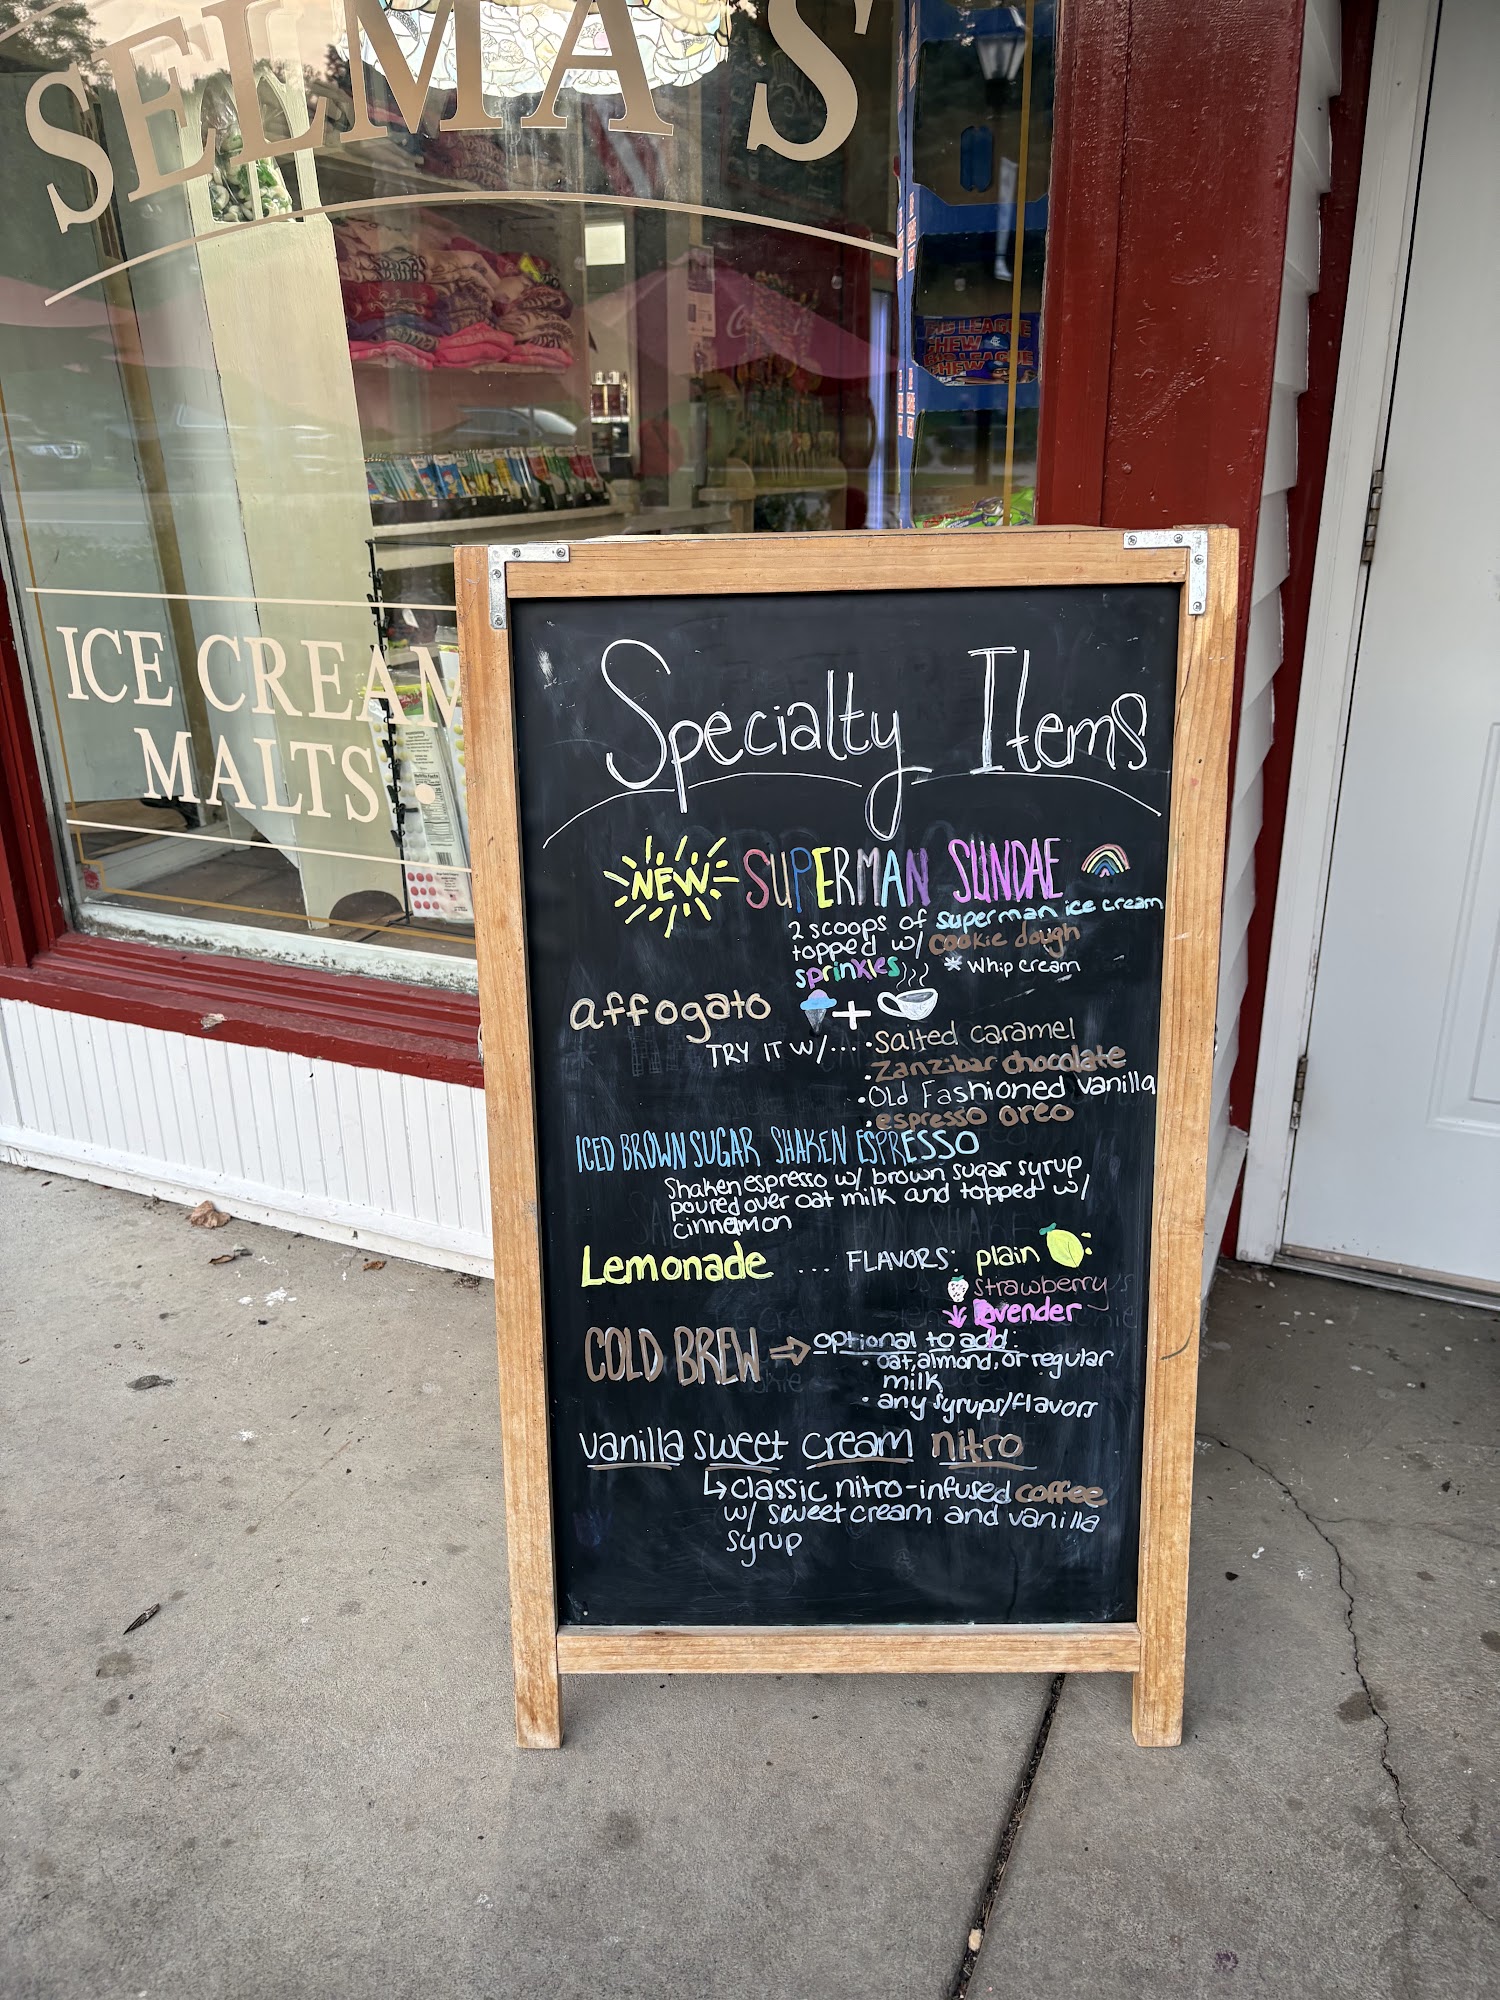 SELMA'S
ICE CREAM
MALTS •
BIG LEAGUE
CHEW
BIG LEAGUE
CHEW
Specialty Items
NEW SUPERMAN SUNDAE
2 scoops of superman ice cream
topped w/ cookie dough
sprinkles * Whip cream
affogato +
TRY IT W/... • Salted caramel
• Zanzibar chocolate
• Old Fashioned vanilla
• espresso oreo
ICED BROWN SUGAR SHAKEN ESPRESSO
Shaken espresso w/ brown sugar syrup
poured over oat milk and topped w/
cinnamon
Lemonade ... FLAVORS: plain
strawberry
lavender
COLD BREW → optional to add:
• oat, almond, or regular
milk
• any syrups/flavors
vanilla sweet cream nitro
↳ classic nitro-infused coffee
w/ sweet cream and vanilla
syrup